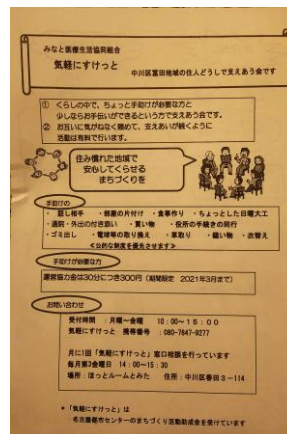 みなと医療生活協同組合
気軽にすけっと 中川区富田地域の住人どうしで支えあう会です
① くらしの中で、ちょっと手助けが必要な方と
少しならお手伝いができるという方で支えあう会です。
② お互いに気がねなく頼めて、支えあいが続くように
活動は有料で行います。
住み慣れた地域で
安心してくらせる
まちづくりを
手助けの
・話し相手 ・部屋の片付け ・食事作り ・ちょっとした日曜大工
・通院・外出の付き添い ・買い物 ・役所の手続きの同行
・ゴミ出し ・電球等の取り換え ・草取り ・縫い物 ・衣替え
≪公的な制度を優先させます≫
手助けが必要な方
運営協力金は30分につき300円（期間限定 2021年3月まで）
お問い合わせ
受付時間 : 月曜～金曜 10:00～15:00
気軽にすけっと 携帯番号 : 080-7847-9277
月に1回「気軽にすけっと」窓口相談を行っています
毎月第3金曜日 14:00～15:30
場所 : ほっとルームとみた 住所 : 中川区春田3-114
* 「気軽にすけっと」は
名古屋都市センターのまちづくり活動助成金を受けています